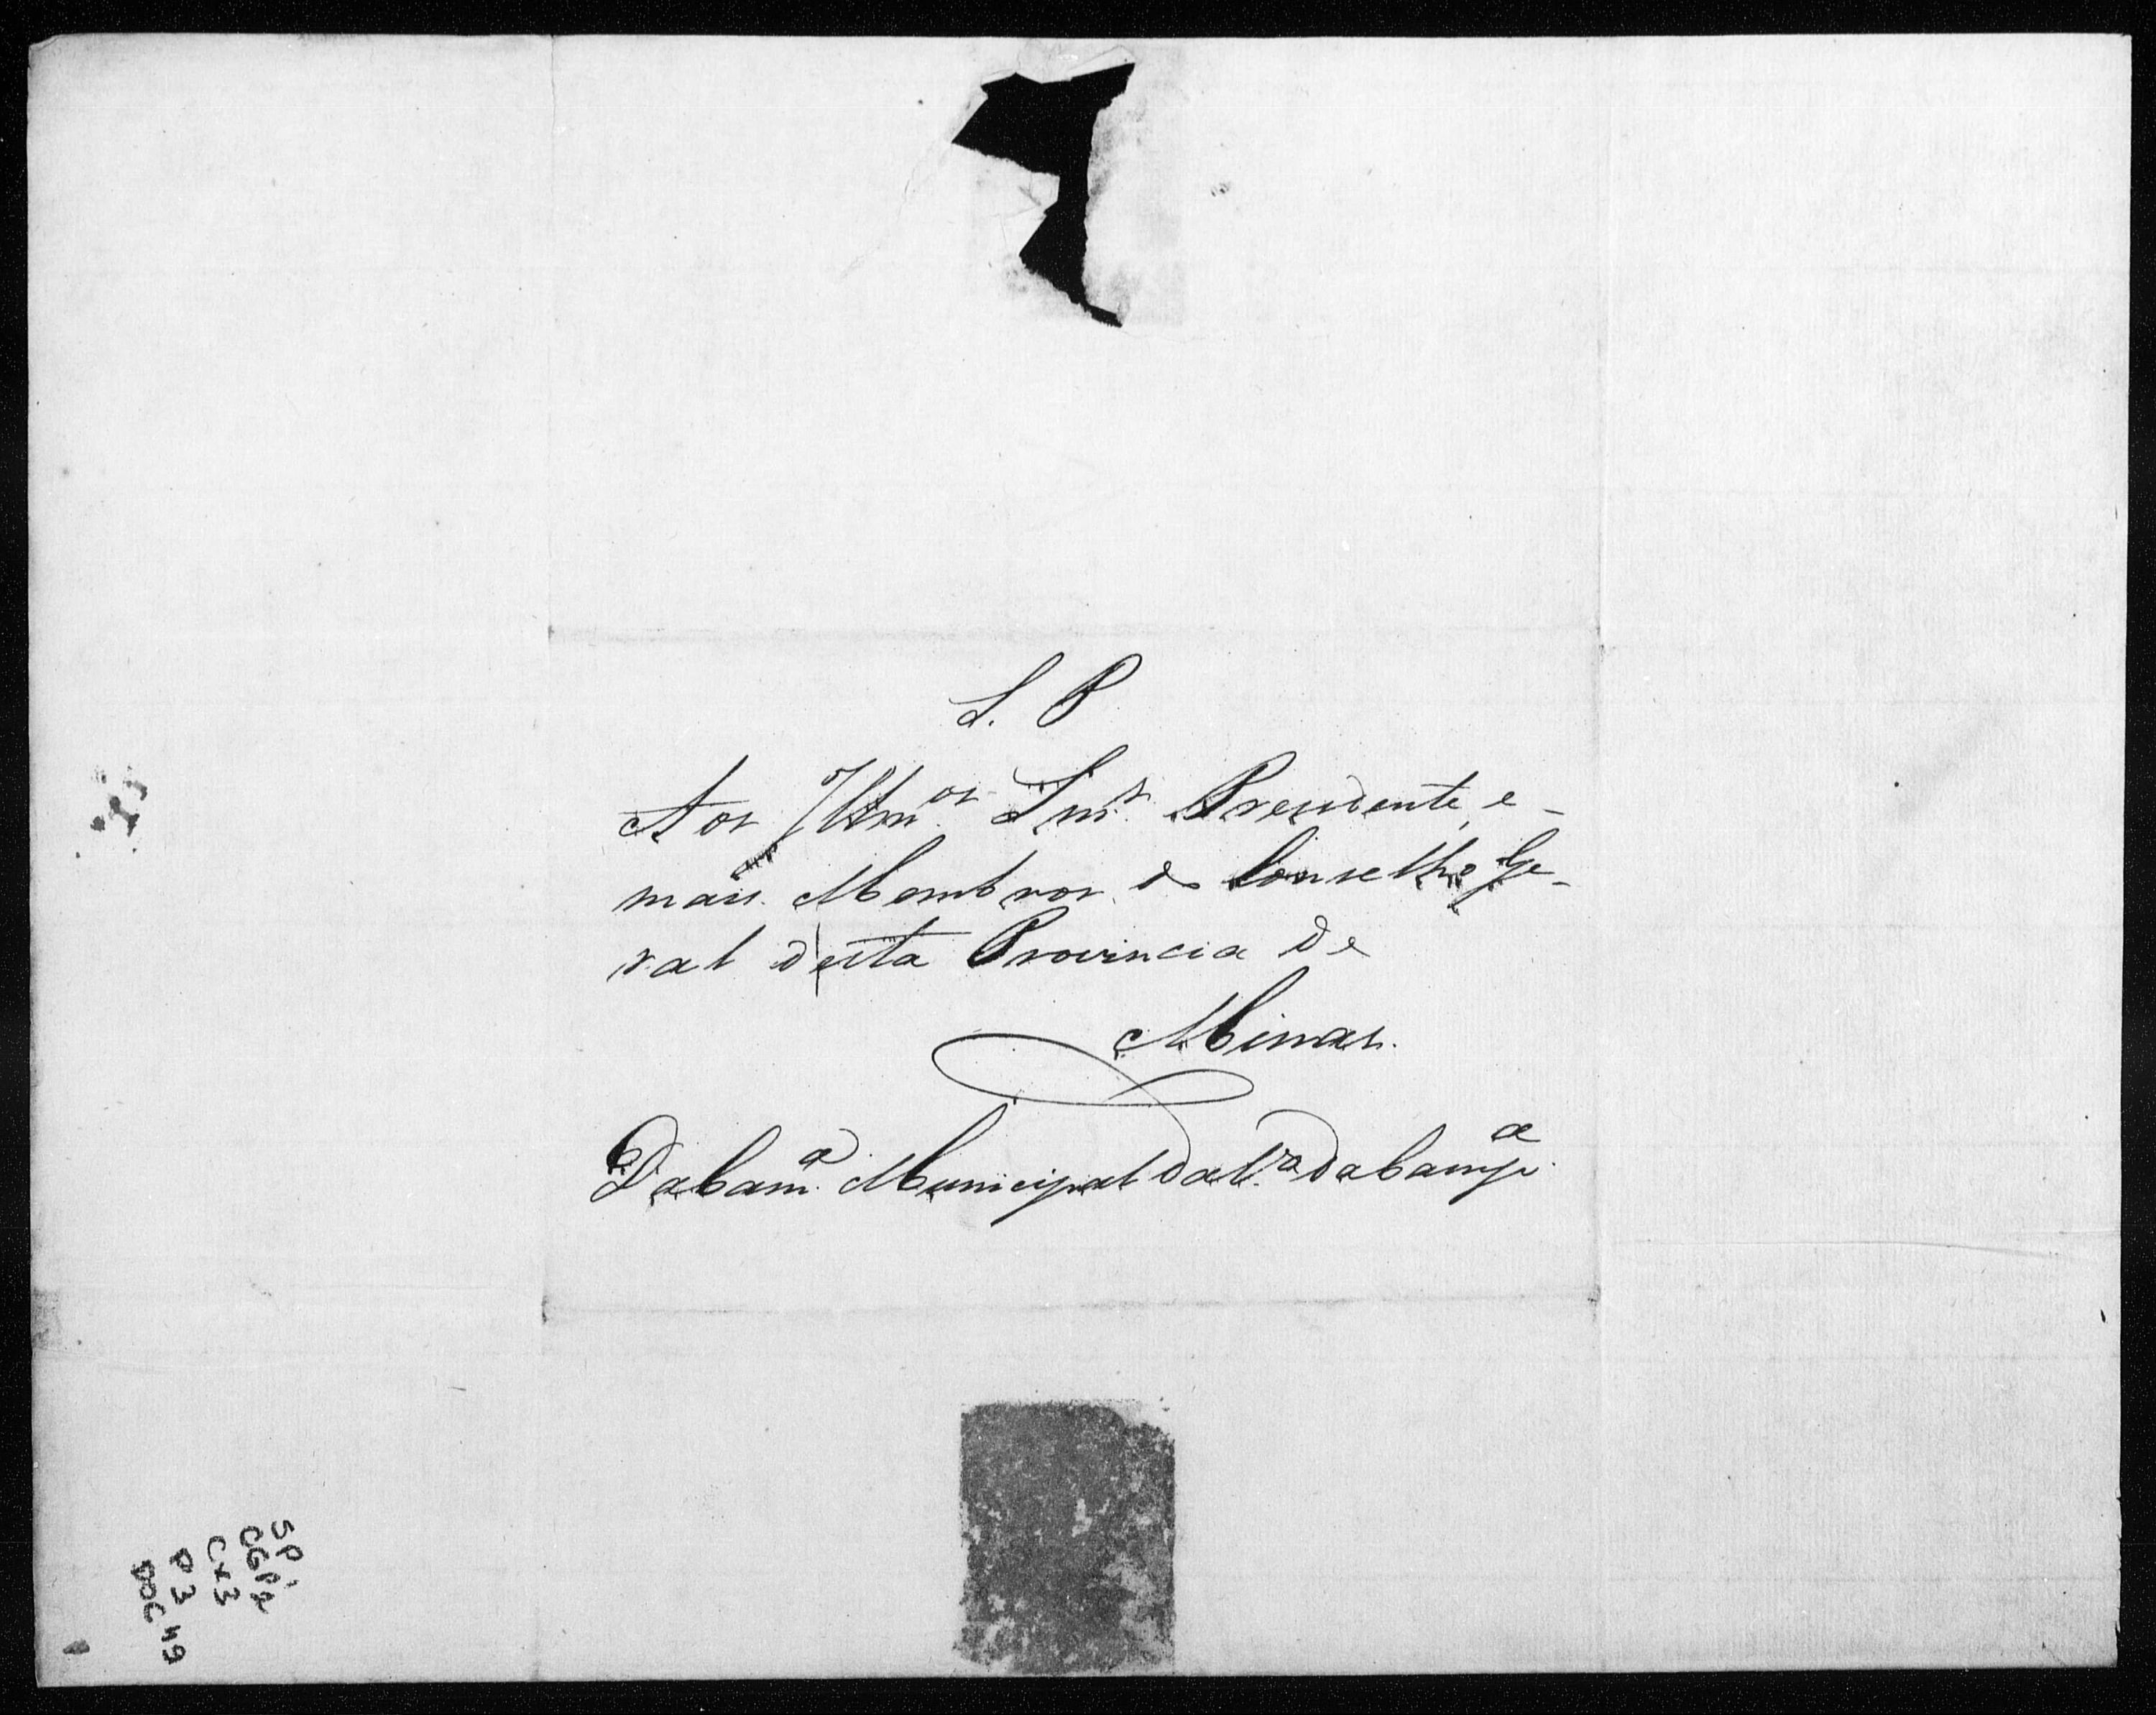 S. P.
Aos Illm.os Snr.s Presidente, e
mais Membros do Conselho Ge-
ral desta Provincia de
Minas.
Da Cam.a Municipal da V.a da Camp.a
SP.
CGP2
Cx3
P3
DOC 49